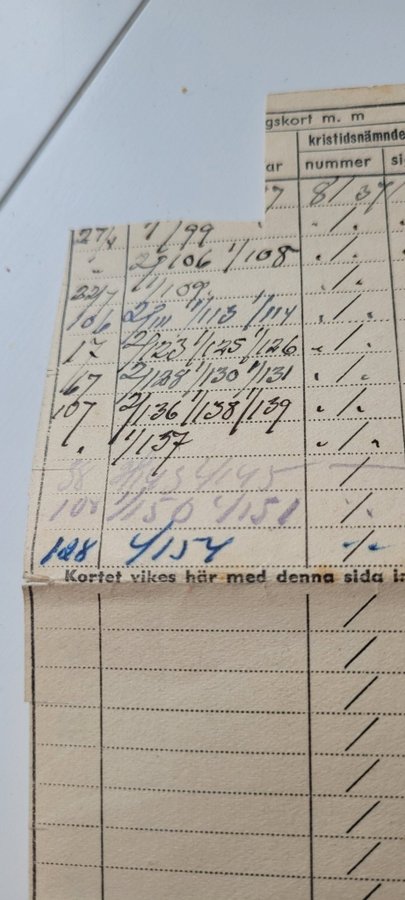 gskort m. m
kristidsnämnde
ar nummer si
7 8/37/
27/4 1/99 " / "
" 2/106 1/108 " / "
22/7 1/109 " / "
10/6 2/111 1/113 1/114 " / "
17 2/123 1/125 1/126 " / "
67 2/128 1/130 1/131 " / "
107 2/136 1/138 1/139 " / "
" 1/137 " / "
4/145 /
108 1/150 4/151 /
128 4/154 /
Kortet vikes här med denna sida i
/
/
/
/
/
/
/
/